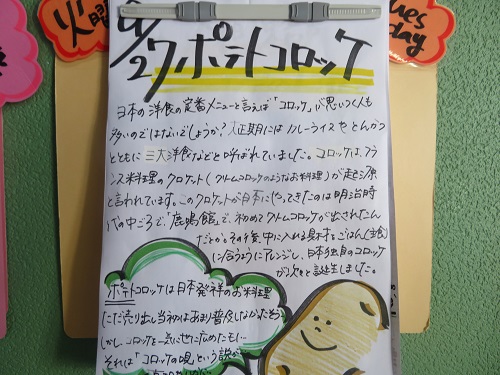 火曜
Tues
day
9/27 ポテトコロッケ
日本の洋食の定番メニューと言えば「コロッケ」が思いつく人も
多いのではないでしょうか？大正期にはカレーライスやとんかつ
とともに三大洋食などと呼ばれていました。コロッケは、フラ
ンス料理のクロケット（クリームコロッケのようなお料理）が起源
と言われています。このクロケットが日本にやってきたのは明治時
代の中ごろで、「鹿鳴館」で、初めてクリームコロッケが出されたん
だとか。その後、中に入れる具材をごはん（主食）
に合うようにアレンジし、日本独自のコロッケ
が次々と誕生しました。
ポテトコロッケは日本発祥のお料理
ただ売り出し当初はあまり普及しなかったそう
しかし、コロッケを一気に世に広めたもに…
それは「コロッケの唄」という説が